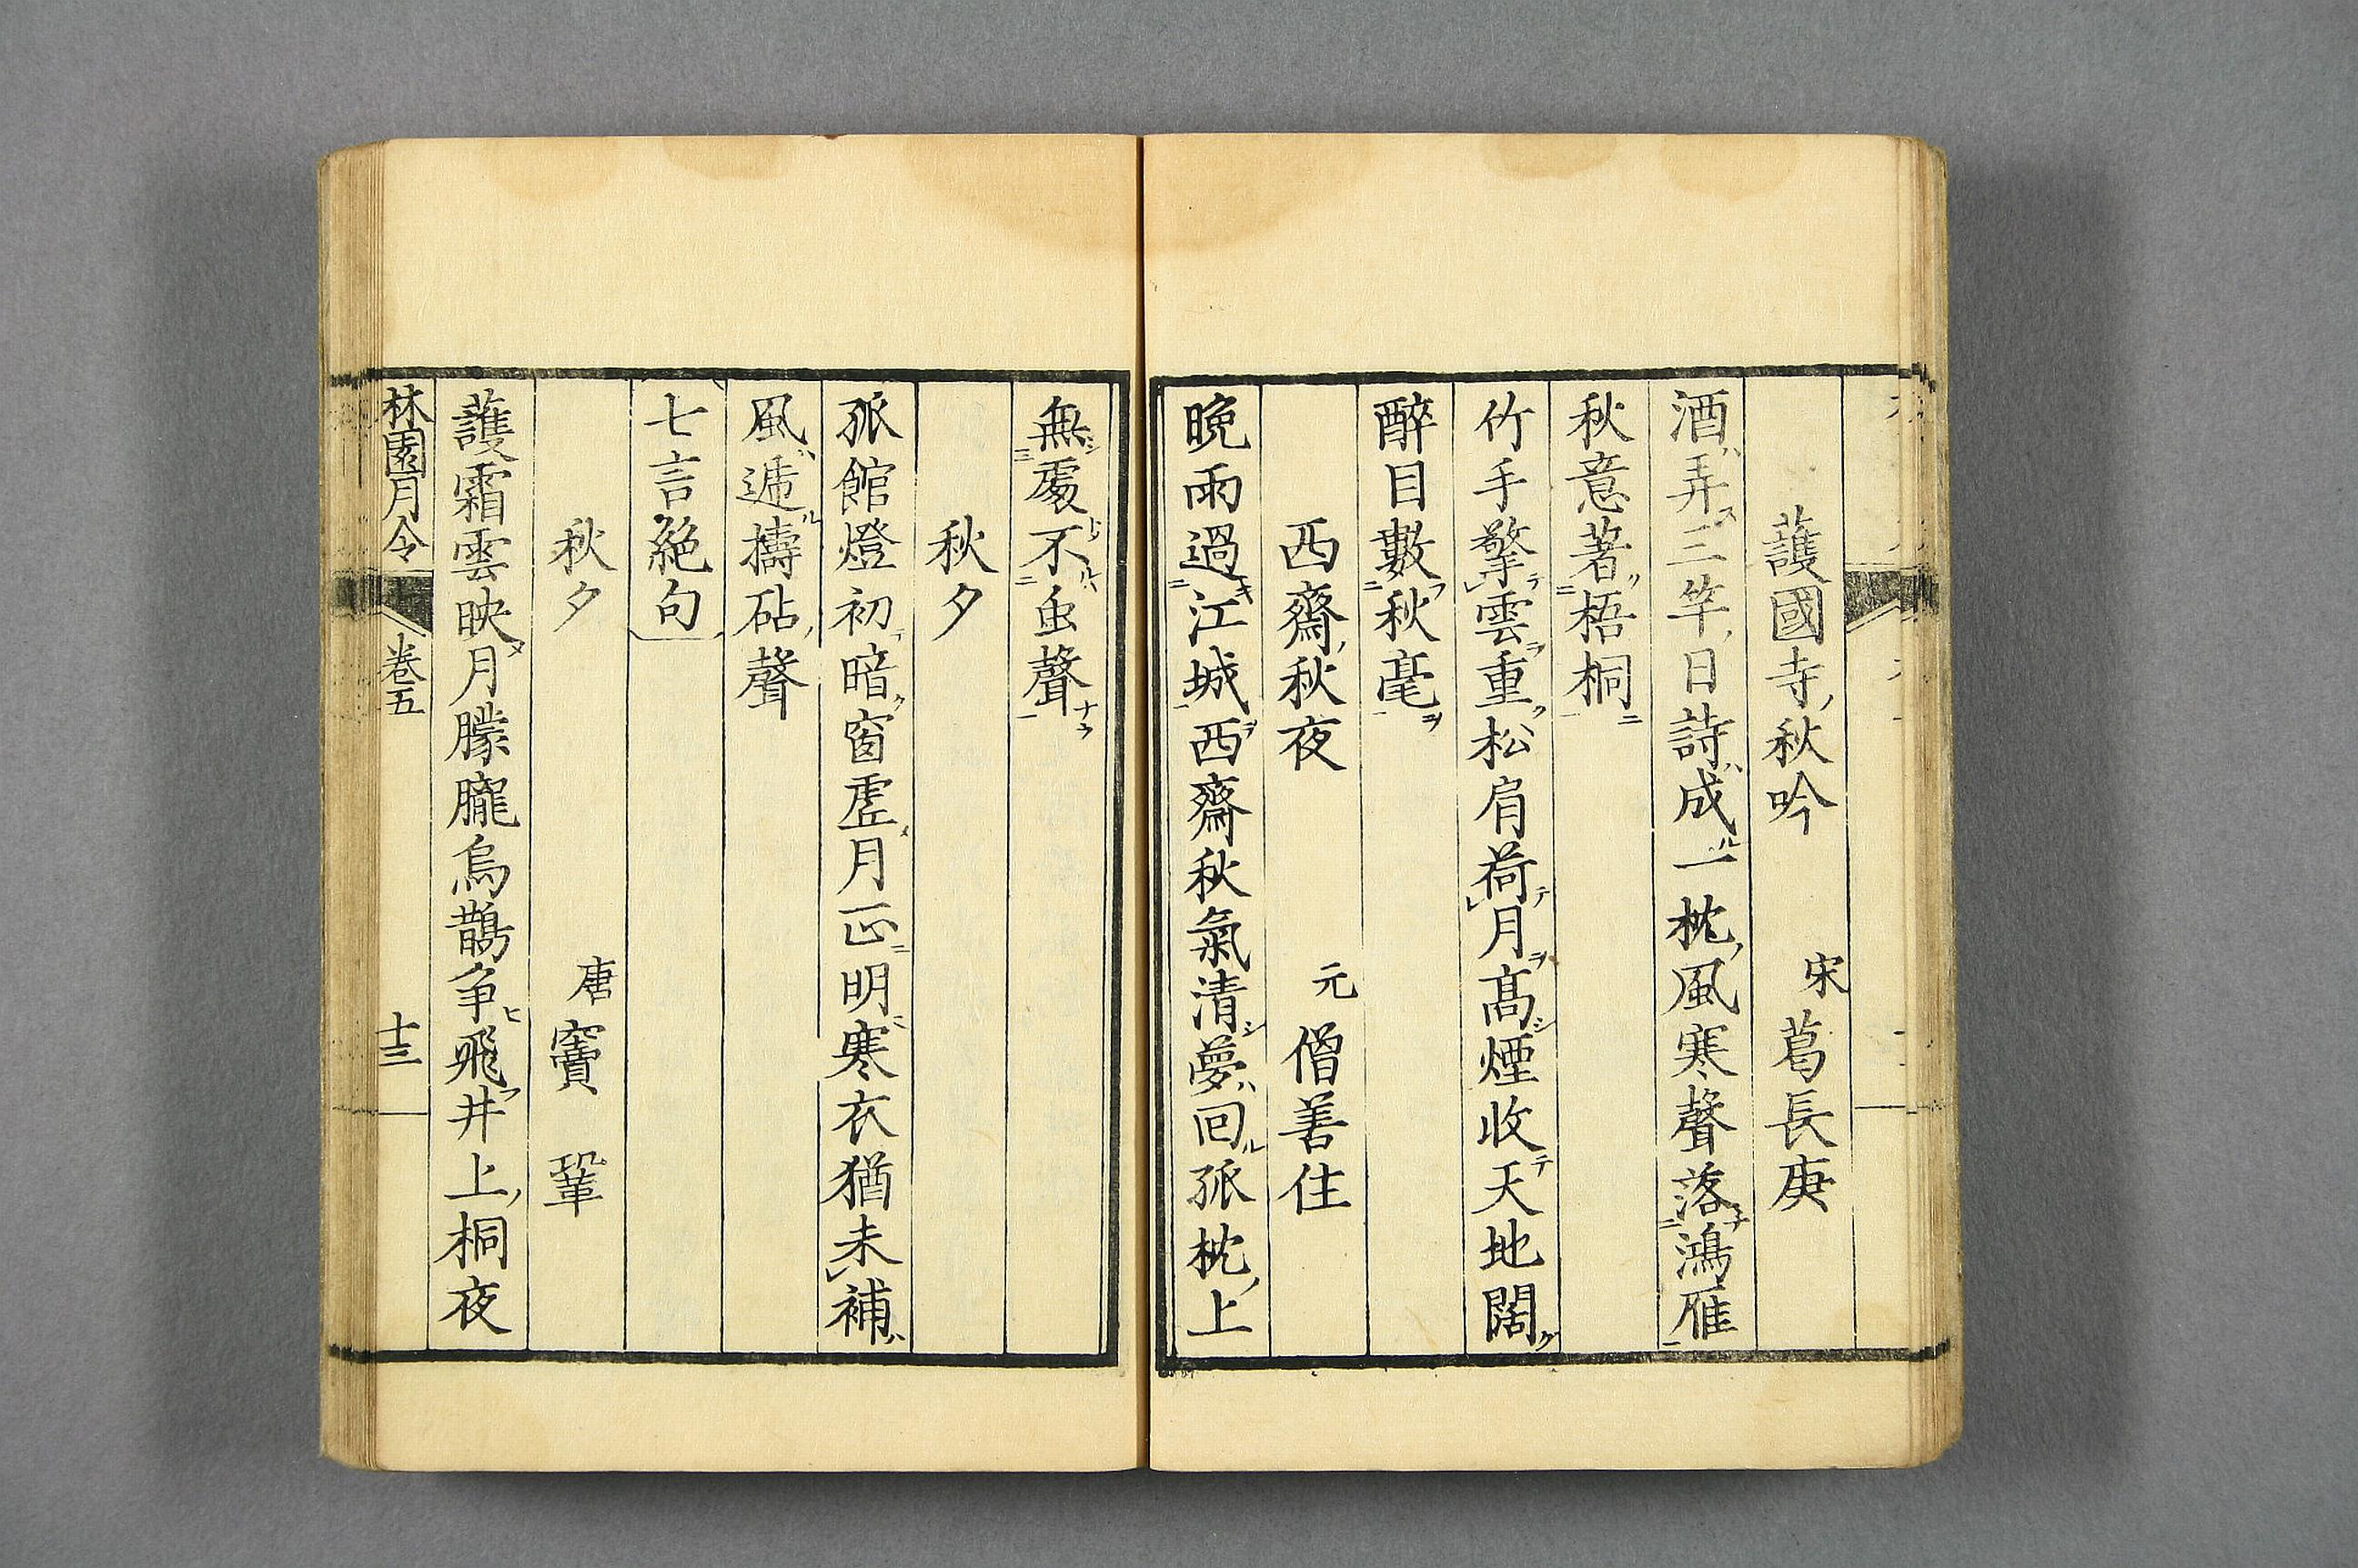 護國寺秋吟 宋 葛長庚
酒弄三竿日詩成一枕風寒聲落鴻雁
秋意著梧桐
竹手擎雲重松肩荷月高煙收天地闊
醉目數秋毫
西齋秋夜 元 僧善住
晩雨過江城西齋秋氣清夢回孤枕上
無處不虫聲
秋夕
孤館燈初暗窗虛月正明寒衣猶未補
風遞擣砧聲
七言絕句
秋夕 唐 竇鞏
護霜雲映月朦朧烏鵲爭飛井上桐夜
林園月令 卷五 十三